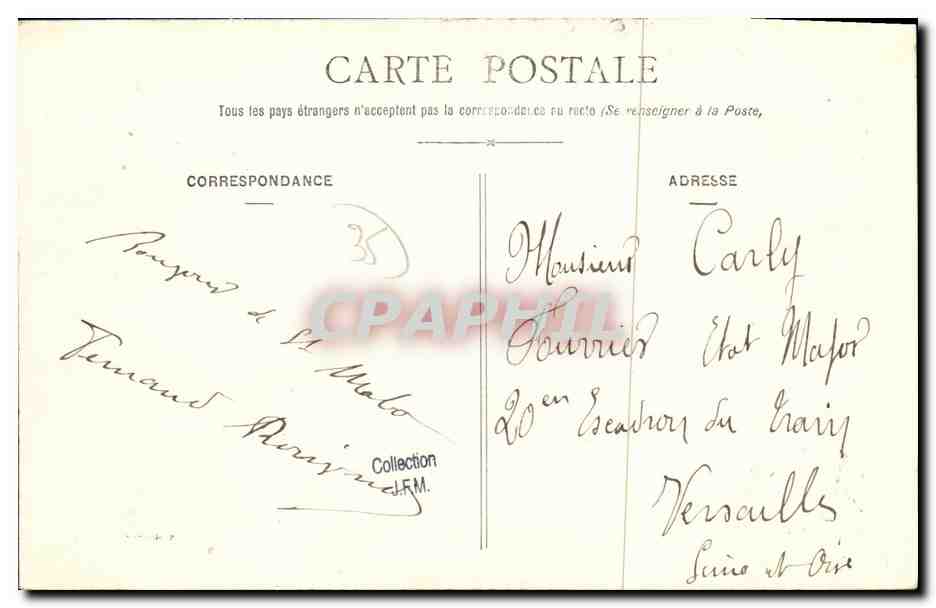 CARTE POSTALE
Tous les pays étrangers n'acceptent pas la correspondance au recto (Se renseigner à la Poste,
CORRESPONDANCE
35
Bonjour de St Malo
Fernand
Collection
J.F.M.
CPAPHIL
ADRESSE
Monsieur Carly
Fourrier Etat Major
20en Escadron du Train
Versailles
Seine et Oise